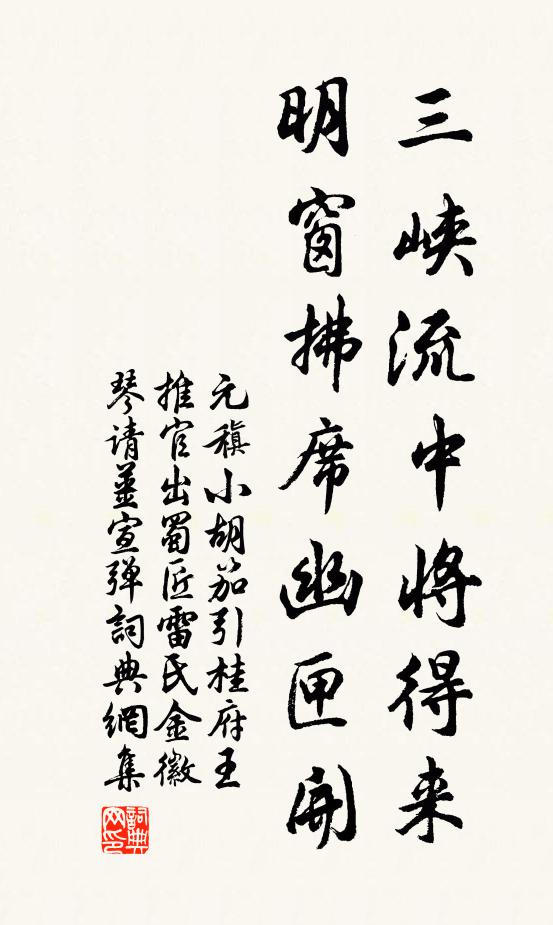 三峡流中将得来
明窗拂席幽匣開
元稹小胡笳引桂府王
推官出蜀匠雷氏金徽
琴请姜宣弹詞典網集
詞典网印